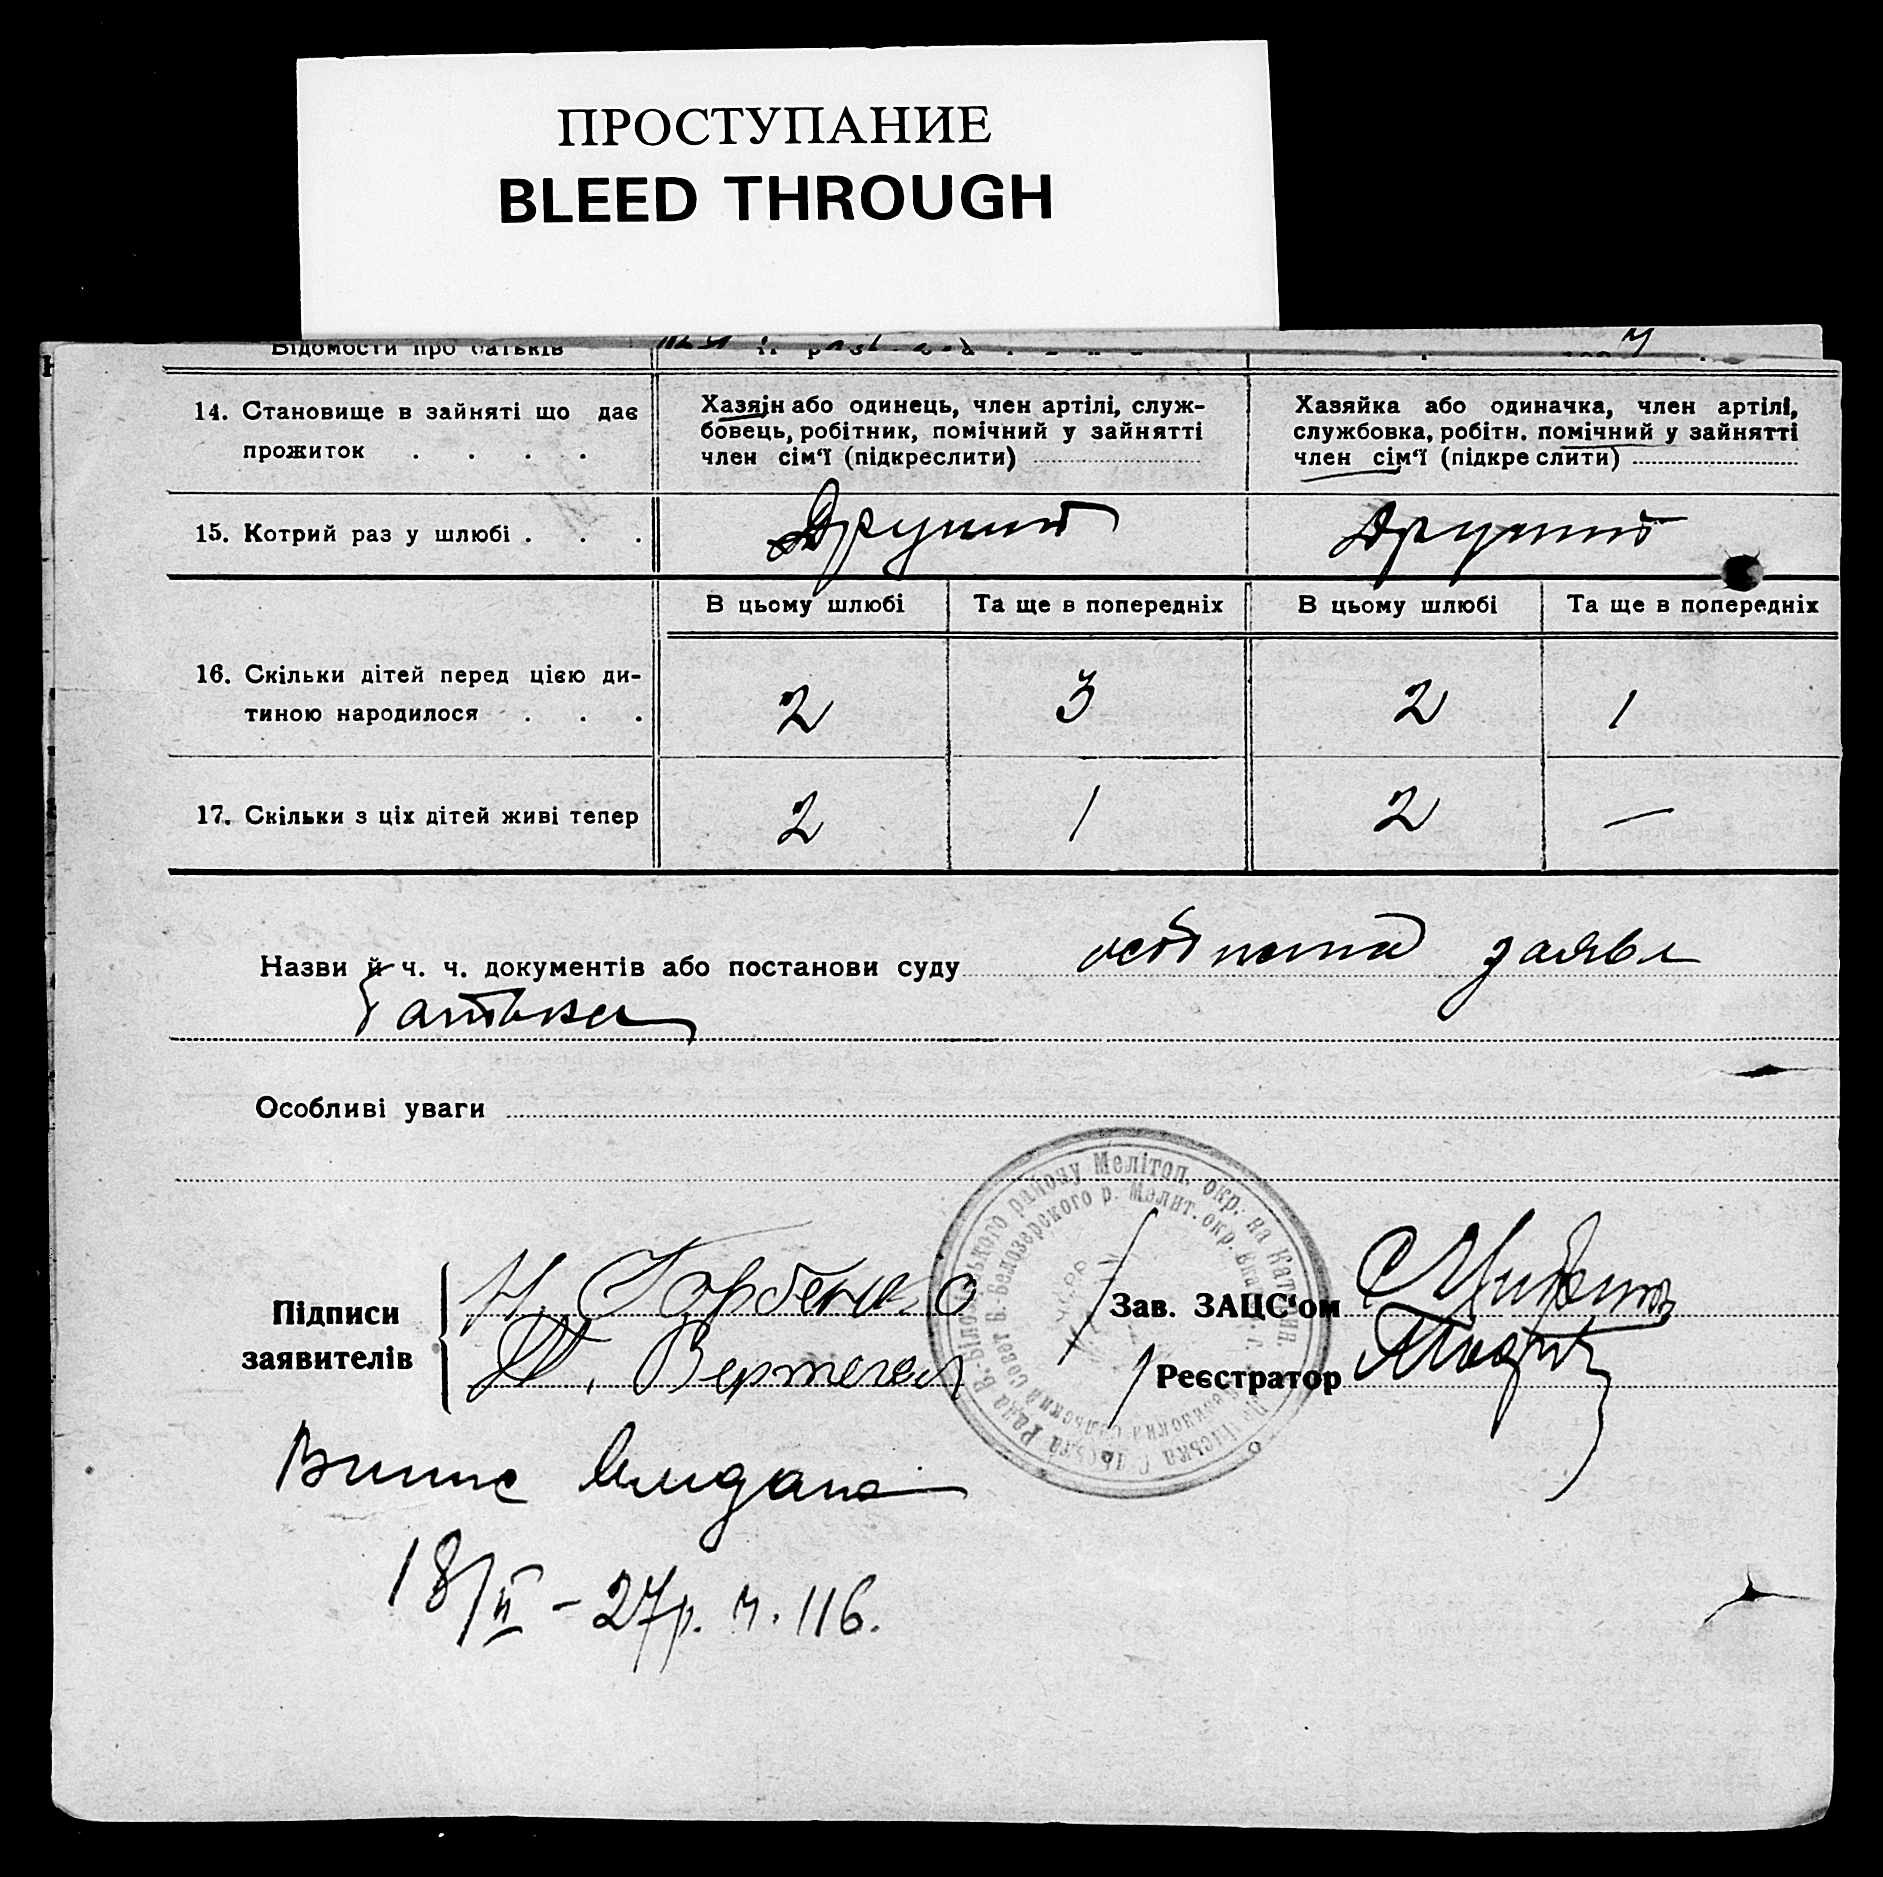 ПРОСТУПАНИЕ
BLEED THROUGH
Відомости про батьків
14. Становище в зайняті що дає
прожиток . . . .
Хазяїн або одинець, член артілі, служ-
бовець, робітник, помічний у зайнятті
член сім'ї (підкреслити)
Хазяйка або одиначка, член артілі,
службовка, робітн. помічний у зайнятті
член сім'ї (підкреслити)
15. Котрий раз у шлюбі . . .
Другий
Другий
В цьому шлюбі
Та ще в попередніх
В цьому шлюбі
Та ще в попередніх
16. Скільки дітей перед цією ди-
тиною народилося . . .
2 3 2 1
17. Скільки з ціх дітей живі тепер
2 1 2 —
Назви й ч. ч. документів або постанови суду
особиста заява
батька
Особливі уваги
Підписи
заявителів
Н. Горбенко
Вертегел
Зав. ЗАЦС'ом
Реєстратор
району Мелітоп. окр. на Катерин.
Белозерского р. Мелит. окр.
Рада В.-Білозерського
Випис видано
18/II – 27р. ч. 116.